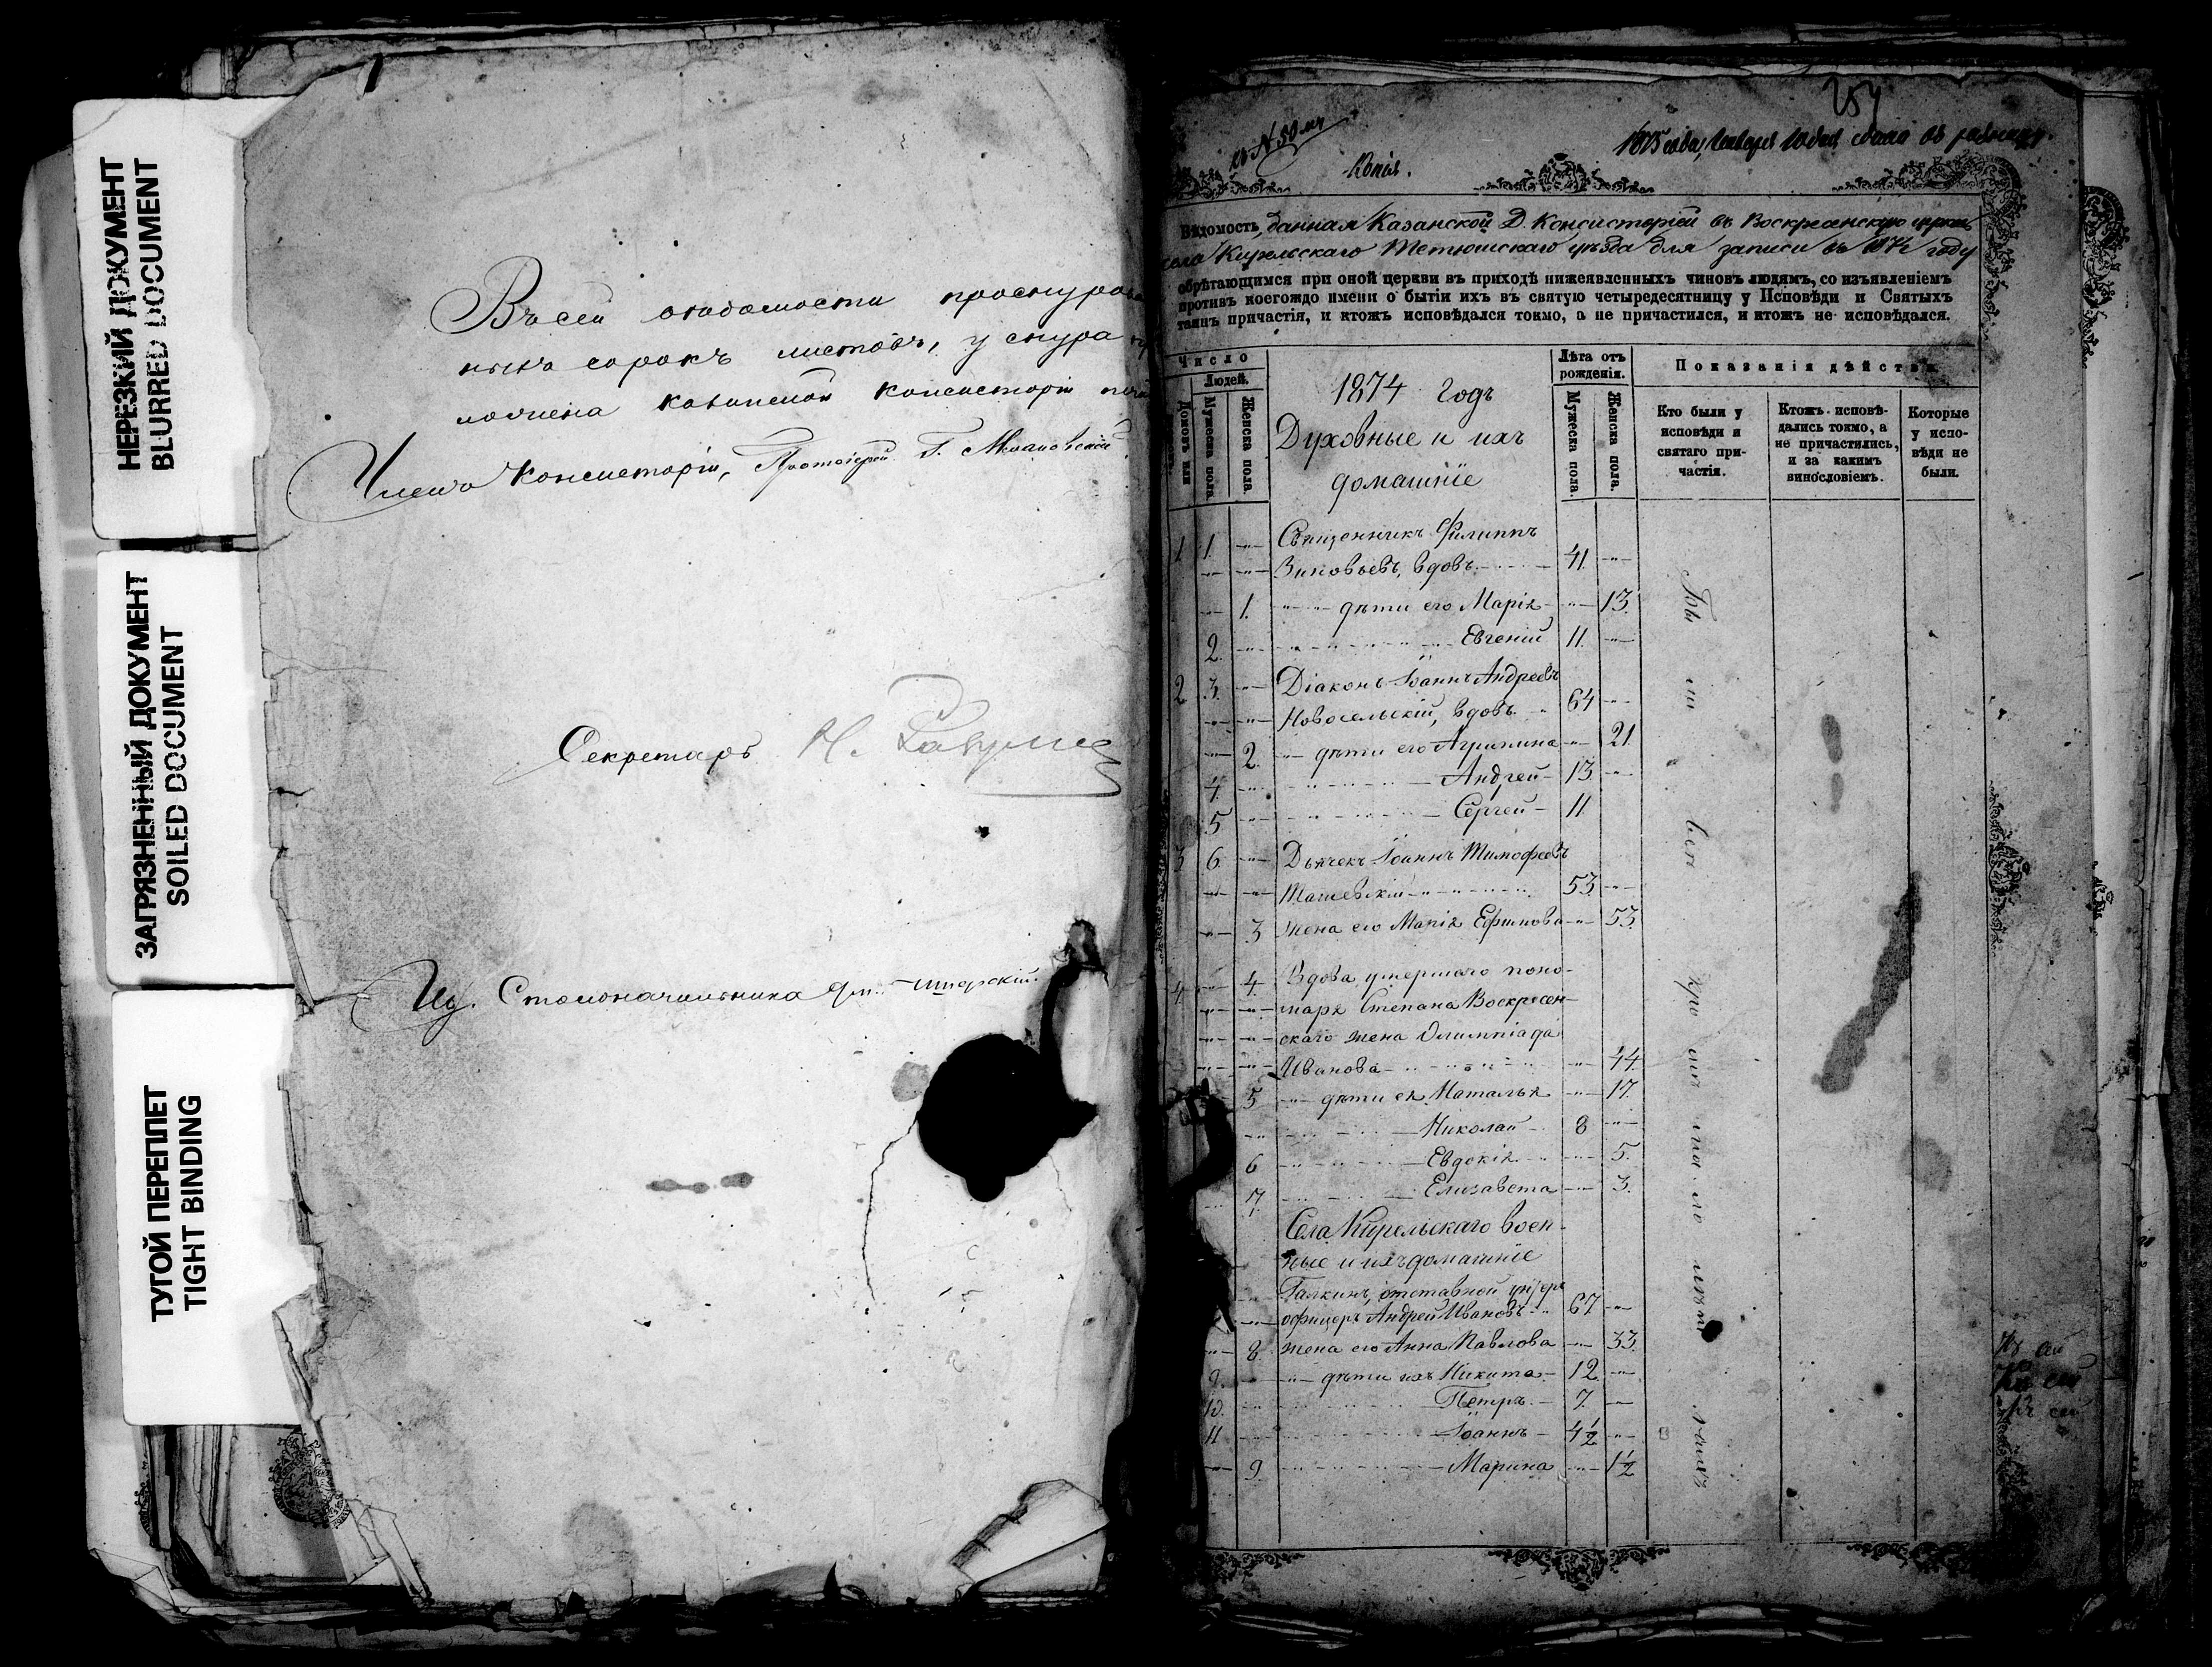 НЕРЕЗКИЙ ДОКУМЕНТ
BLURRED DOCUMENT
ЗАГРЯЗНЕННЫЙ ДОКУМЕНТ
SOILED DOCUMENT
ТУГОЙ ПЕРЕПЛЕТ
TIGHT BINDING
Въ сей вѣдомости прошнурова
ныхъ сорокъ листовъ, у снура
ложена Казанской консисторіи печа
Членъ Консисторіи, Протоіерей
Секретарь Н.
Столоначальника
257
Копія.
1875 года, Января
Вѣдомость, данная Казанской Д. Консисторіей въ Воскресенскую церковь
села Кирельскаго Тетюшскаго уѣзда для записи въ 1874 году
обрѣтающимся при оной церкви въ приходѣ нижеявленныхъ чиновъ людямъ, со изъявленіемъ
противъ коегождо имени о бытіи ихъ въ святую четыредесятницу у Исповѣди и Святыхъ
таинъ причастія, и ктожъ исповѣдался токмо, а не причастился, и ктожъ не исповѣдался.
Число
Людей.
Мужеска пола.
Женска пола.
1874 Годъ
Духовные и ихъ
домашніе
Лѣта отъ
рожденія.
Мужеска пола.
Женска пола.
Показанія дѣйства
Кто были у
исповѣди и
святаго при-
частія.
Ктожъ исповѣ-
дались токмо, а
не причастились,
и за какимъ
винословіемъ.
Которые
у испо-
вѣди не
были.
1 1 Священникъ Филиппъ
Зиновьевъ, вдовъ 41
1. дѣти его Марія 13.
2. Евгеній 11
2 3. Діаконъ Іоаннъ Андреевъ
Новосельскій, вдовъ 64
2. дѣти его Агрипина 21
4. Андрей 13
5 Сергей 11
3 6 Дьячекъ Іоаннъ Тимофеевъ
53
3 жена его Марія Ефимова 53
4 4. Вдова умершаго поно-
маря Степана Воскресен-
скаго жена Олимпіада
Иванова 44
5 дѣти ея Наталья 17
Николай 8
6 Евдокія 5
7 Елизавета 3.
Села Кирельскаго воен-
ные и ихъ домашніе
Галкинъ, отставной унтеръ
офицеръ Андрей Ивановъ 67
8. жена его Анна Павлова 33
9. дѣти ихъ Никита 12
10. Петръ 7
11 Іоаннъ 4½
9. Марина 1½